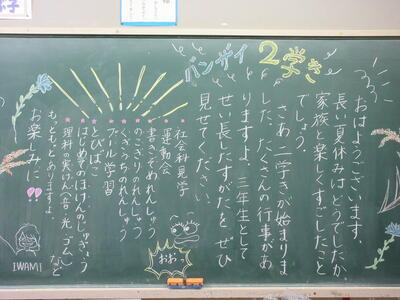 バンザイ 2学き
おはようございます。
長い夏休みはどうでしたか。
家族と楽しくすごしたこと
でしょう。
さあ 二学きが始まりま
した。たくさんの行事があ
りますよ。三年生として
せい長したすがたを ぜひ
見せてください。
社会科見学
運動会
書きぞめれんしゅう
のこぎりのれんしゅう
くぎうちのれんしゅう
フィールド学習
とびばこ
はじめてのほけんのじゅぎょう
理科の実けん(音・光・ゴム) など
もっともっとありますよ。
お楽しみに!!
おおー
IWAMI